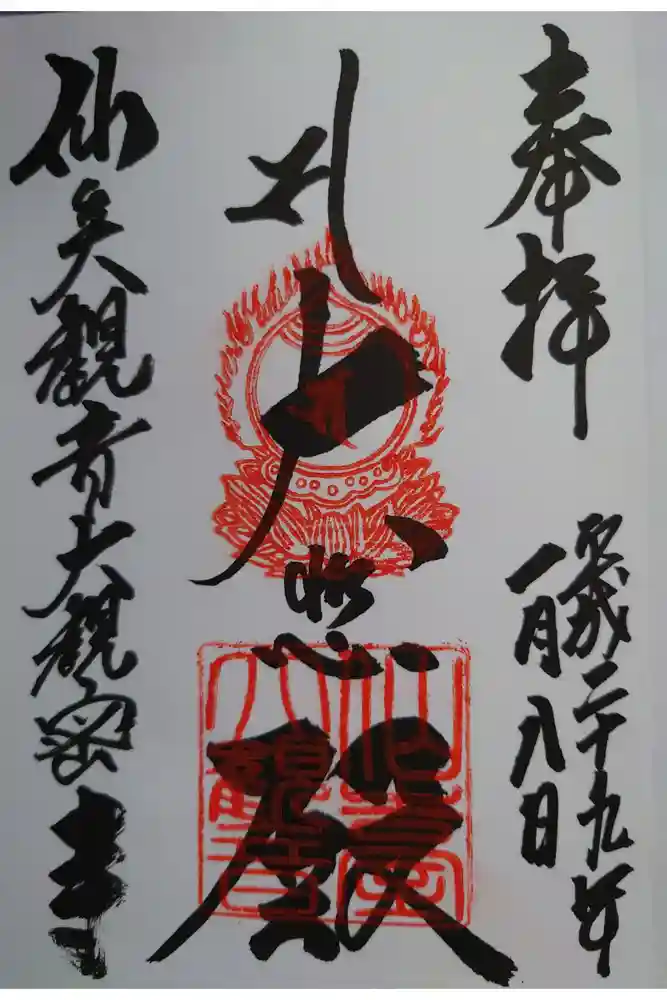 奉拝
平成二十九年
一月八日
大悲殿
仙臺観音大観密寺